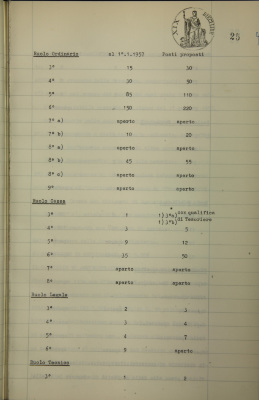 25
Ruolo Ordinario al 1°.1.1957 Posti proposti
3° 15 30
4° 30 50
5° 85 110
6° 150 200
7° a) aperto aperto
7° b) 10 25
8° a) aperto aperto
8° b) 45 55
8° c) aperto aperto
9° aperto aperto
Ruolo Cassa
3° 1 1) 3°a) con qualifica
1) 3°b) di Tesoriere
4° 3 5
5° 9 12
6° 35 50
7° aperto aperto
8° aperto aperto
Ruolo Legale
3° 2 3
4° 3 4
5° 4 7
6° 9 aperto
Ruolo Tecnico
3° 1 2